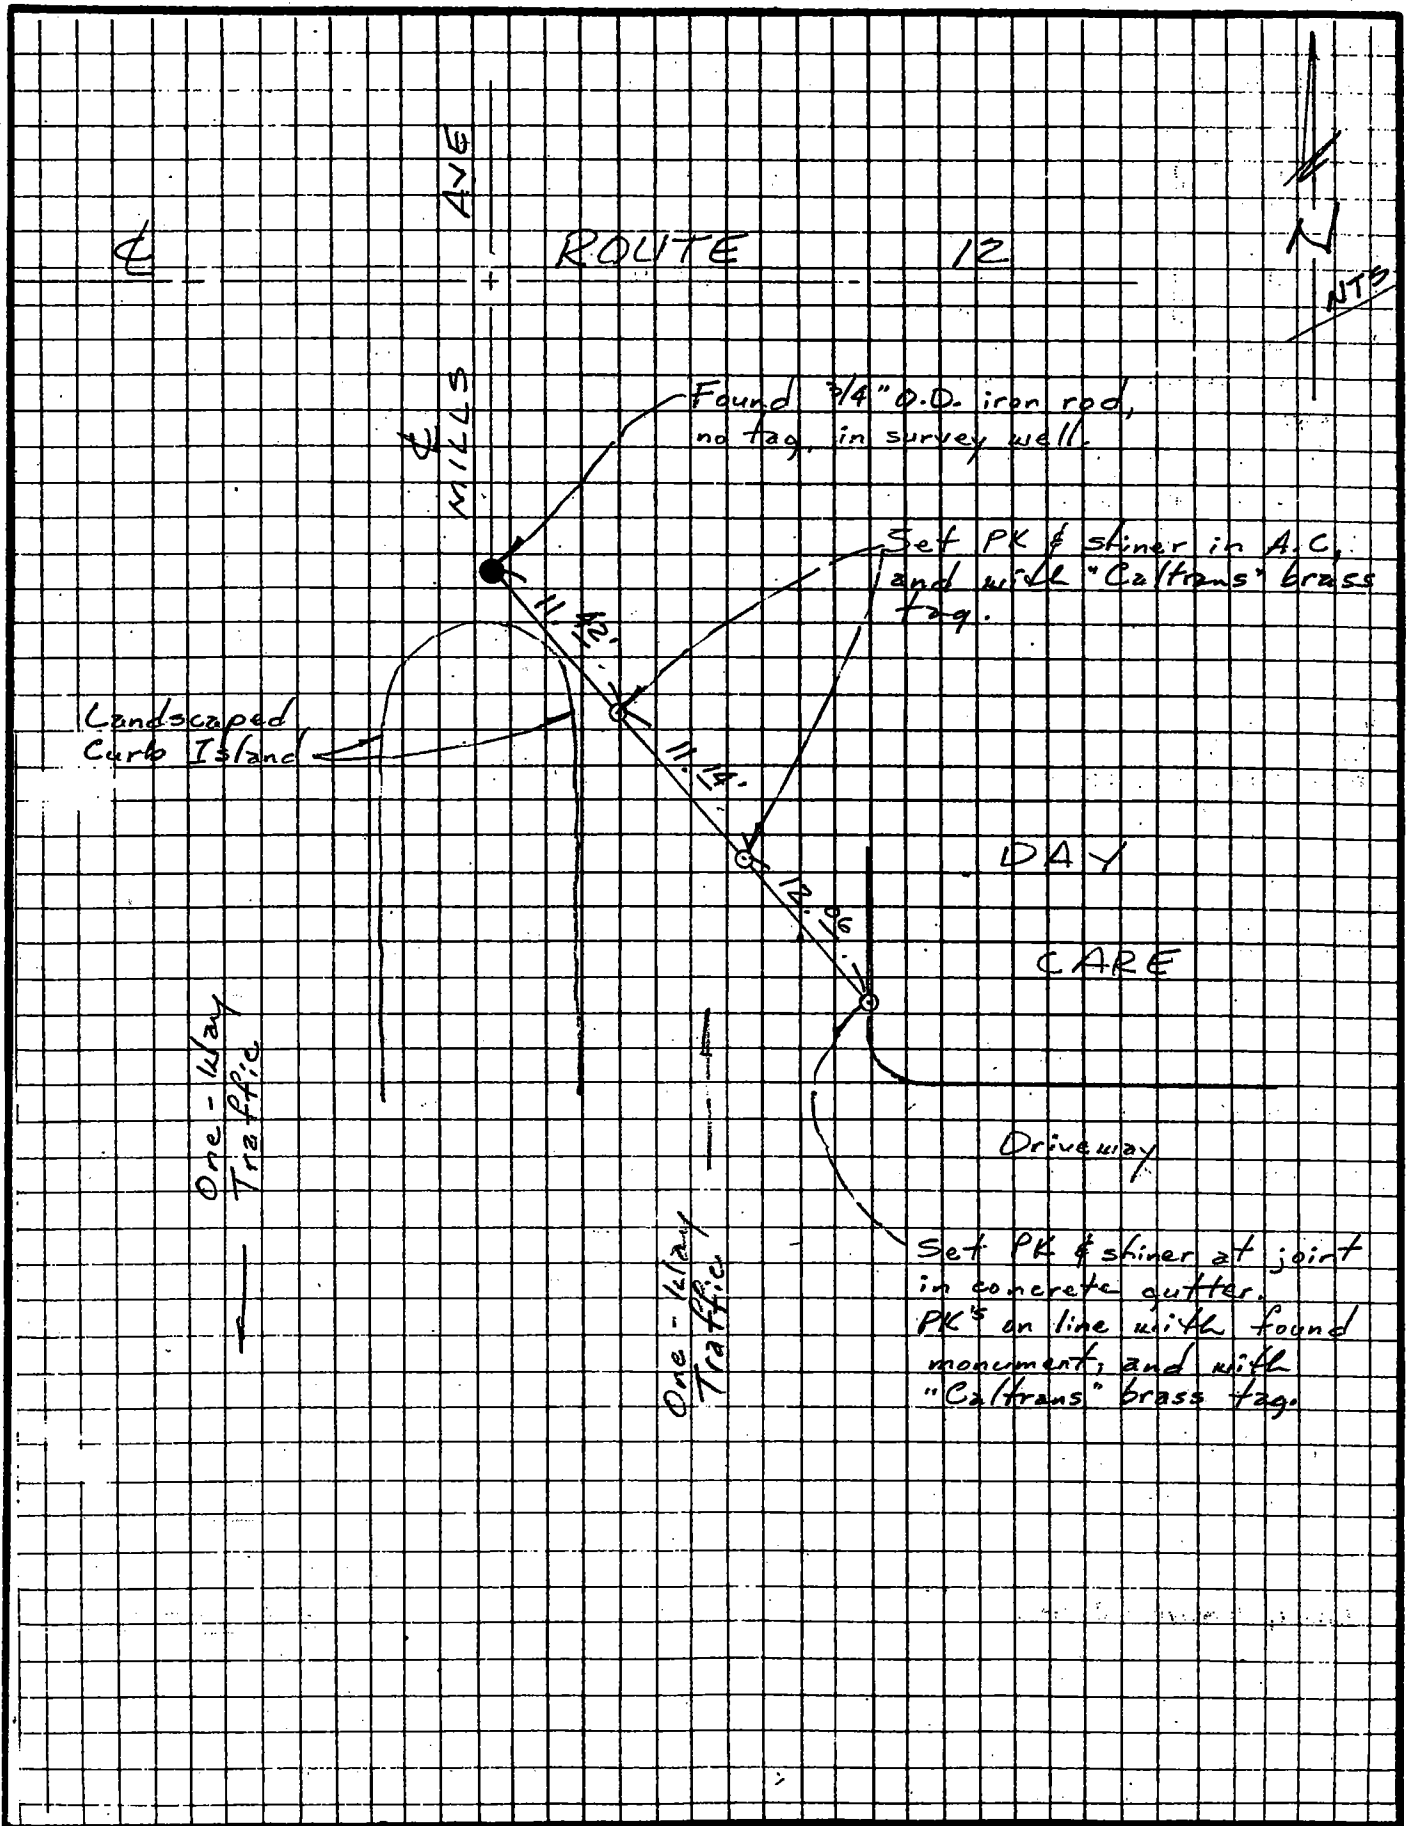 AVE
℄ ROUTE 12
N
NTS
℄
MILLS
Found 3/4" O.D. iron rod,
no tag, in survey well.
Set PK & shiner in A.C.
and with "Caltrans" brass
tag.
11.42'
Landscaped
Curb Island
11.14'
12.06'
DAY
CARE
One-Way
Traffic
Driveway
One-Way
Traffic
Set PK & shiner at joint
in concrete gutter.
PK's on line with found
monument, and with
"Caltrans" brass tag.